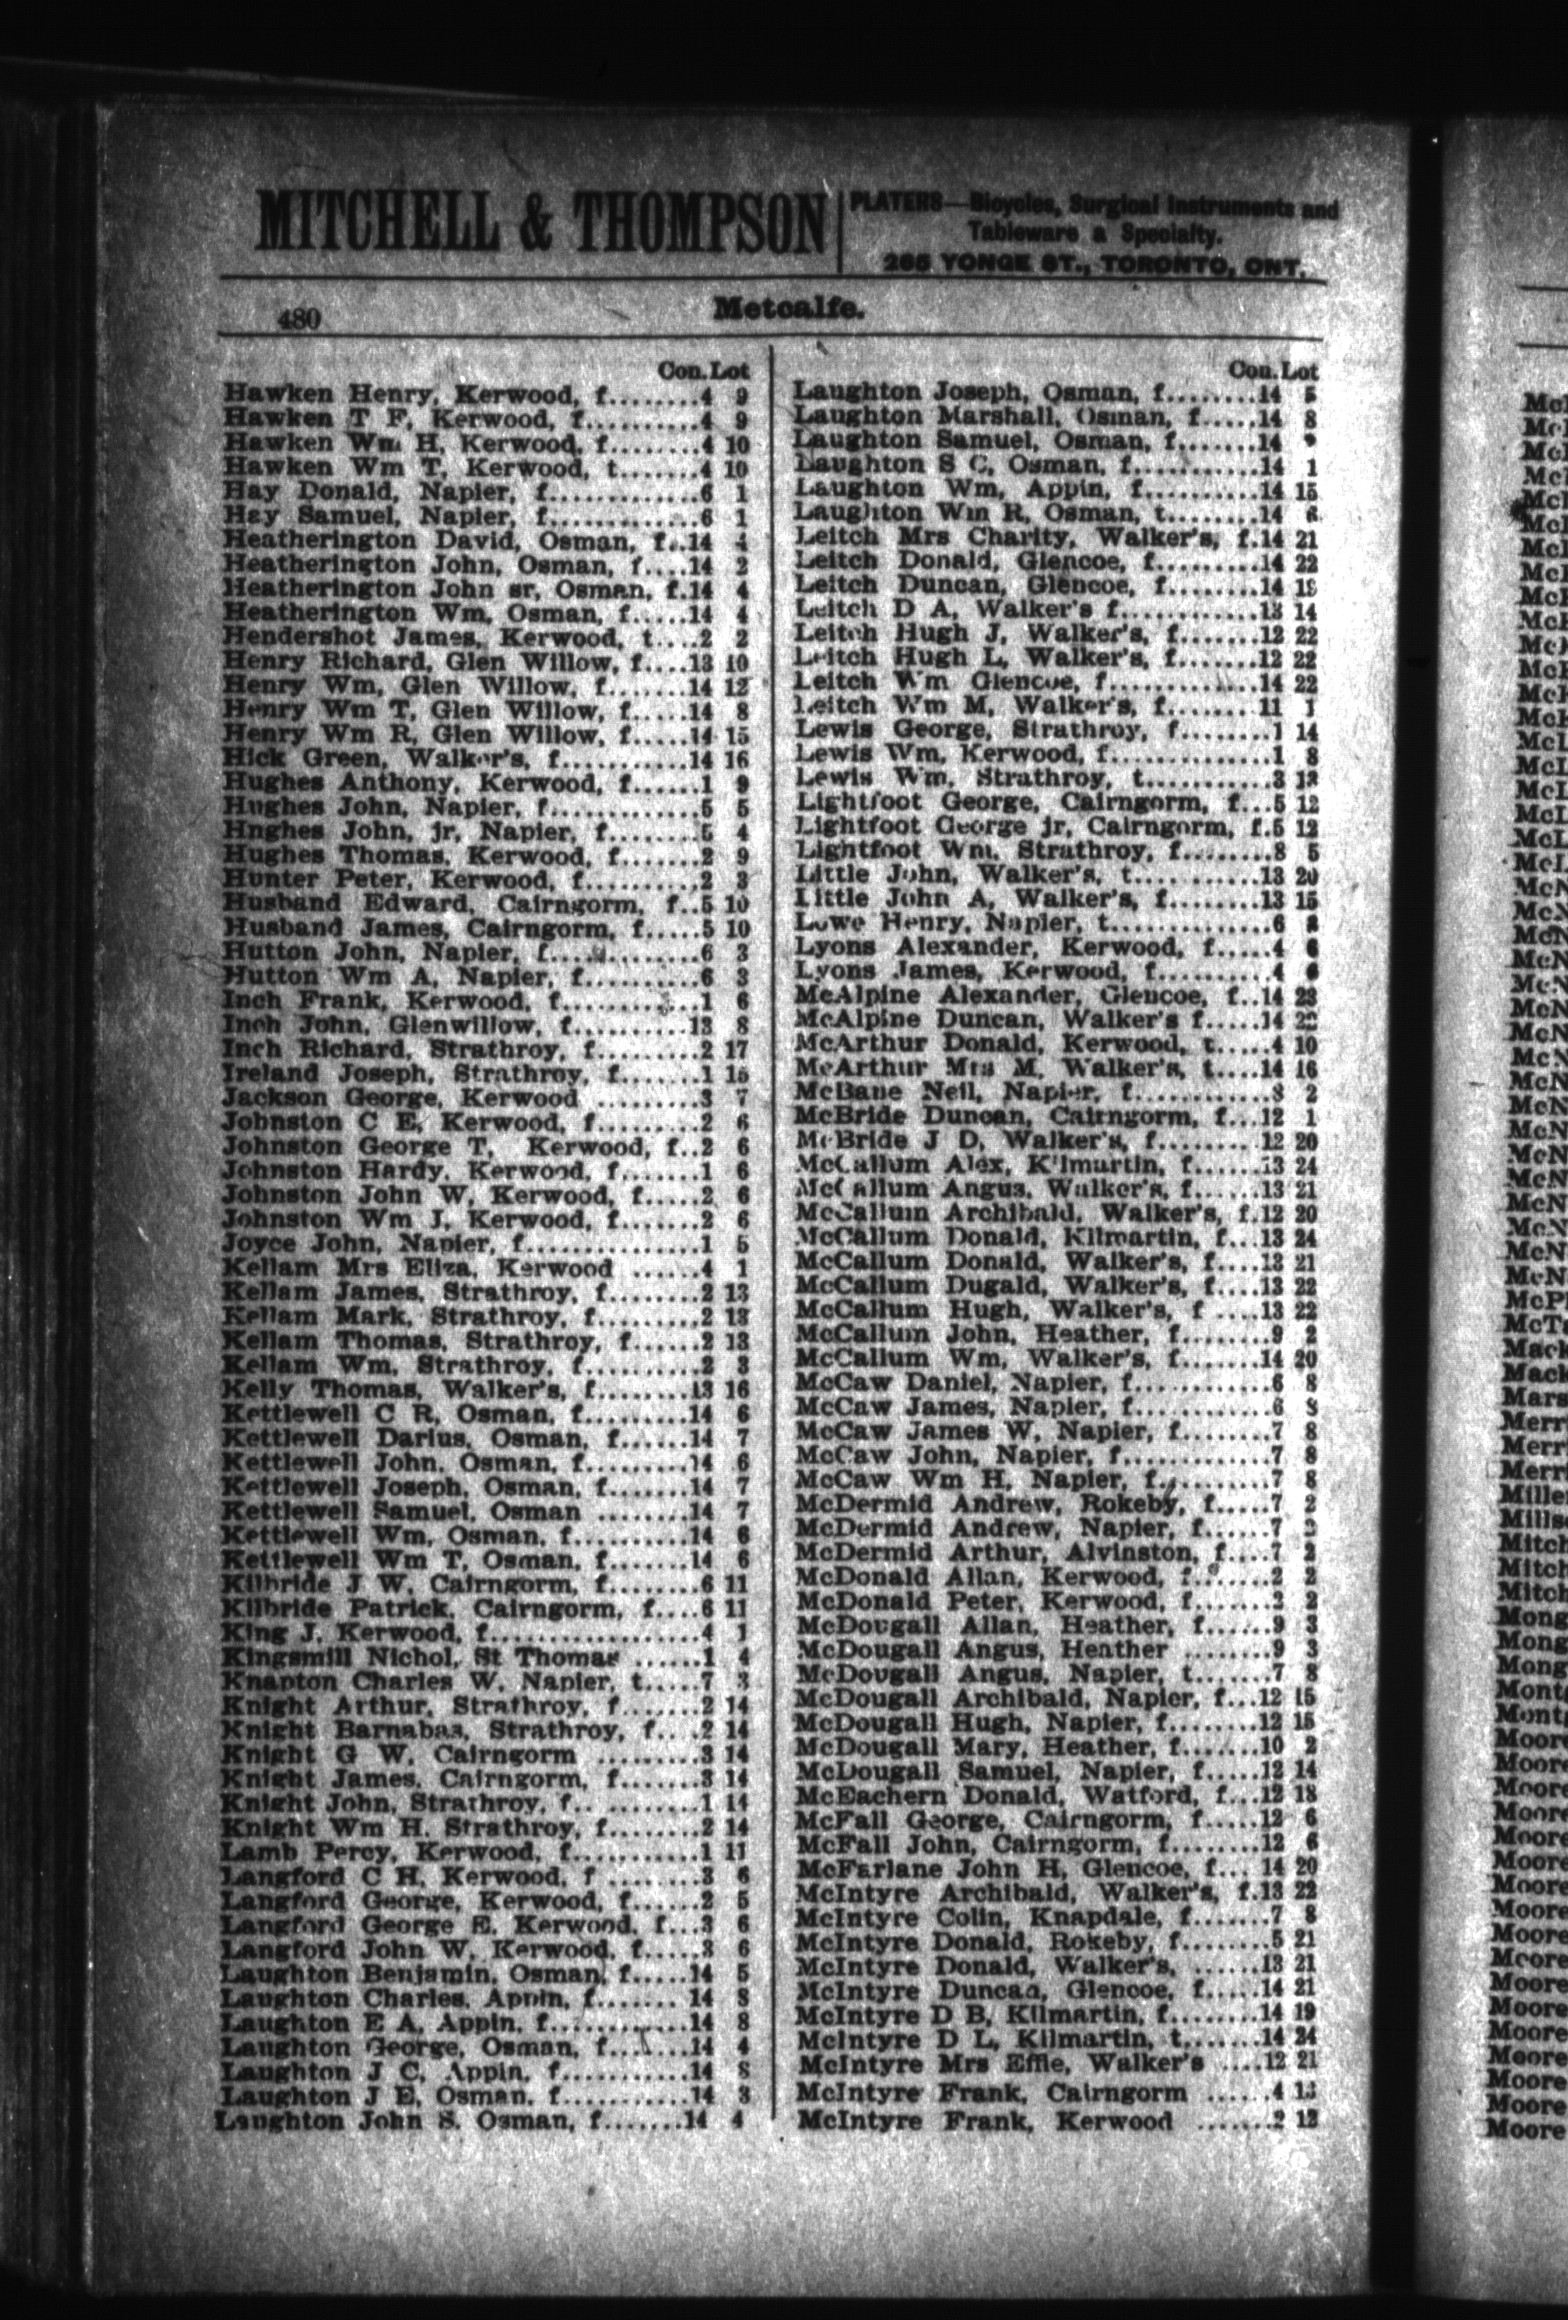 MITCHELL & THOMPSON
PLATERS—Bicycles, Surgical Instruments and
Tableware a Specialty.
265 YONGE ST., TORONTO, ONT.
480
Metcalfe.
Con. Lot
Hawken Henry, Kerwood, f........4 9
Hawken T F, Kerwood, f..........4 9
Hawken Wm H, Kerwood, f........4 10
Hawken Wm T, Kerwood, t.......4 10
Hay Donald, Napier, f.............6 1
Hay Samuel, Napier, f.............6 1
Heatherington David, Osman, f..14 4
Heatherington John, Osman, f....14 2
Heatherington John sr, Osman, f.14 4
Heatherington Wm, Osman, f.....14 4
Hendershot James, Kerwood, t....2 2
Henry Richard, Glen Willow, f....13 10
Henry Wm, Glen Willow, f.......14 12
Henry Wm T, Glen Willow, f.....14 8
Henry Wm R, Glen Willow, f.....14 15
Hick Green, Walker's, f...........14 16
Hughes Anthony, Kerwood, f......1 9
Hughes John, Napier, f............5 5
Hnghes John, jr, Napier, f........5 4
Hughes Thomas, Kerwood, f.......2 9
Hunter Peter, Kerwood, f..........2 3
Husband Edward, Cairngorm, f..5 10
Husband James, Cairngorm, f.....5 10
Hutton John, Napier, f............6 3
Hutton Wm A, Napier, f..........6 3
Inch Frank, Kerwood, f............1 6
Inch John, Glenwillow, f..........13 8
Inch Richard, Strathroy, f.........2 17
Ireland Joseph, Strathroy, f.......1 15
Jackson George, Kerwood .........3 7
Johnston C E, Kerwood, f.........2 6
Johnston George T, Kerwood, f..2 6
Johnston Hardy, Kerwood, f.......1 6
Johnston John W, Kerwood, f.....2 6
Johnston Wm J, Kerwood, f.......2 6
Joyce John, Napier, f...............1 5
Kellam Mrs Eliza, Kerwood ......4 1
Kellam James, Strathroy, f........2 13
Kellam Mark, Strathroy, f.........2 13
Kellam Thomas, Strathroy, f......2 13
Kellam Wm, Strathroy, f..........2 3
Kelly Thomas, Walker's, f........13 16
Kettlewell C R, Osman, f.........14 6
Kettlewell Darius, Osman, f......14 7
Kettlewell John, Osman, f.........14 6
Kettlewell Joseph, Osman, f.......14 7
Kettlewell Samuel, Osman ........14 7
Kettlewell Wm, Osman, f..........14 6
Kettlewell Wm T, Osman, f.......14 6
Kilbride J W, Cairngorm, f........6 11
Kilbride Patrick, Cairngorm, f....6 11
King J, Kerwood, f..................4 1
Kingsmill Nichol, St Thomas ......1 4
Knapton Charles W, Napier, t.....7 3
Knight Arthur, Strathroy, f.......2 14
Knight Barnabas, Strathroy, f....2 14
Knight G W, Cairngorm .........3 14
Knight James, Cairngorm, f.......3 14
Knight John, Strathroy, f.. ........1 14
Knight Wm H, Strathroy, f........2 14
Lamb Percy, Kerwood, f...........1 11
Langford C H, Kerwood, f ........3 6
Langford George, Kerwood, f......2 5
Langford George E, Kerwood, f...3 6
Langford John W, Kerwood, f.....3 6
Laughton Benjamin, Osman, f.....14 5
Laughton Charles, Appin, f....... 14 8
Laughton E A, Appin, f............14 8
Laughton George, Osman, f.......14 4
Laughton J C, Appin, f...........14 8
Laughton J E, Osman, f...........14 3
Laughton John S, Osman, f.......14 4
Con. Lot
Laughton Joseph, Osman, f........14 5
Laughton Marshall, Osman, f.....14 8
Laughton Samuel, Osman, f.......14
Laughton S C, Osman, f...........14 1
Laughton Wm, Appin, f..........14 15
Laughton Wm R, Osman, t.......14 6
Leitch Mrs Charity, Walker's, f.14 21
Leitch Donald, Glencoe, f.........14 22
Leitch Duncan, Glencoe, f........14 19
Leitch D A, Walker's f............13 14
Leitch Hugh J, Walker's, f.......12 22
Leitch Hugh L, Walker's, f.......12 22
Leitch Wm Glencoe, f.............14 22
Leitch Wm M, Walker's, f........11 1
Lewis George, Strathroy, f.........1 14
Lewis Wm, Kerwood, f..............1 8
Lewis Wm, Strathroy, t...........3 13
Lightfoot George, Cairngorm, f...5 12
Lightfoot George jr, Cairngorm, f.5 12
Lightfoot Wm, Strathroy, f........8 5
Little John, Walker's, t...........13 20
Little John A, Walker's, f........13 15
Lowe Henry, Napier, t..............6
Lyons Alexander, Kerwood, f.....4 6
Lyons James, Kerwood, f..........4 6
McAlpine Alexander, Glencoe, f..14 23
McAlpine Duncan, Walker's f.....14 22
McArthur Donald, Kerwood, t.....4 10
McArthur Mrs M, Walker's, t....14 16
McBane Neil, Napier, f............8 2
McBride Duncan, Cairngorm, f...12 1
McBride J D, Walker's, f......... 12 20
McCallum Alex, Kilmartin, f......13 24
McCallum Angus, Walker's, f......13 21
McCallum Archibald, Walker's, f.12 20
McCallum Donald, Kilmartin, f...13 24
McCallum Donald, Walker's, f....13 21
McCallum Dugald, Walker's, f....13 22
McCallum Hugh, Walker's, f ....13 22
McCallum John, Heather, f........9 2
McCallum Wm, Walker's, f.......14 20
McCaw Daniel, Napier, f............6 8
McCaw James, Napier, f............6 8
McCaw James W, Napier, f........7 8
McCaw John, Napier, f.............7 8
McCaw Wm H, Napier, f...........7 8
McDermid Andrew, Rokeby, f.....7 2
McDermid Andrew, Napier, f......7 2
McDermid Arthur, Alvinston, f....7 2
McDonald Allan, Kerwood, f.......2 2
McDonald Peter, Kerwood, f.......2 2
McDougall Allan, Heather, f......9 3
McDougall Angus, Heather ........9 3
McDougall Angus, Napier, t.......7 8
McDougall Archibald, Napier, f...12 15
McDougall Hugh, Napier, f........12 15
McDougall Mary, Heather, f.......10 2
McDougall Samuel, Napier, f......12 14
McEachern Donald, Watford, f...12 18
McFall George, Cairngorm, f.....12 6
McFall John, Cairngorm, f........12 6
McFarlane John H, Glencoe, f... 14 20
McIntyre Archibald, Walker's, f.13 22
McIntyre Colin, Knapdale, f.......7 8
McIntyre Donald, Rokeby, f........5 21
McIntyre Donald, Walker's, ......13 21
McIntyre Duncan, Glencoe, f.....14 21
McIntyre D B, Kilmartin, f.......14 19
McIntyre D L, Kilmartin, t.......14 24
McIntyre Mrs Effie, Walker's ....12 21
McIntyre Frank, Cairngorm ......4 13
McIntyre Frank, Kerwood .......2 12